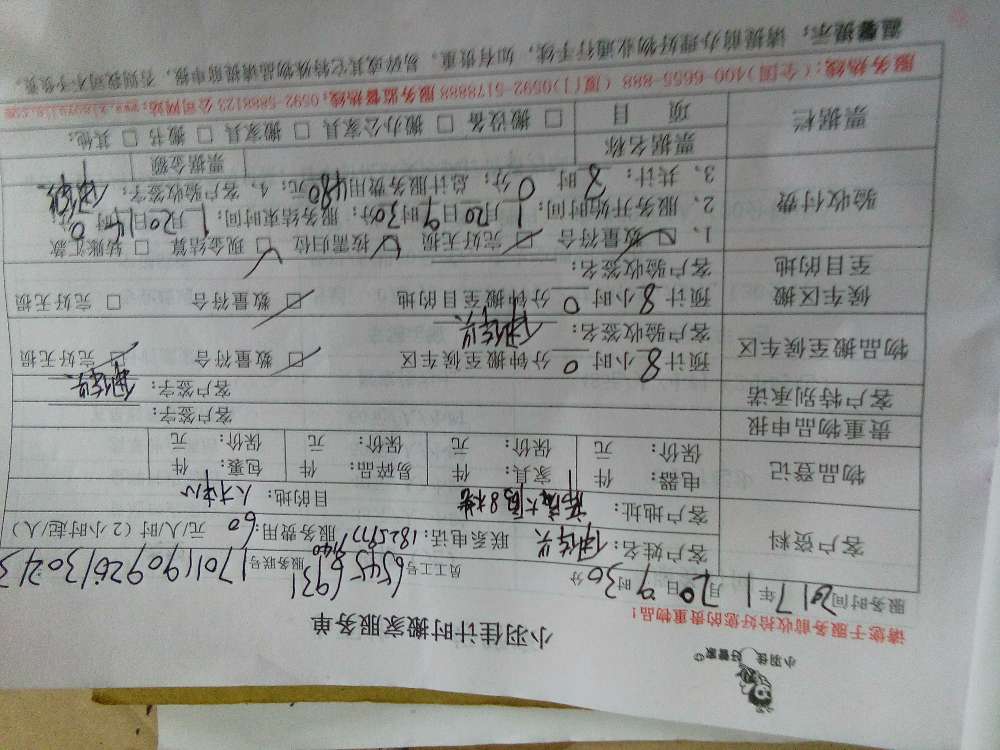 小羽佳 好管家
请您于服务前收拾好您的贵重物品！
小羽佳计时搬家服务单
服务时间 2017年 1月 20日 9时 30分
员工工号 6545 931 服务联号 1701190926130243
客户资料 客户姓名： 联系电话： 服务费用：60 元/人/时（2小时起/人）
客户地址： 目的地：人才中心
物品登记 电器： 件 家具： 件 易碎品： 件 包裹： 件
保价： 元 保价： 元 保价： 元 保价： 元
贵重物品申报 客户签字：
客户特别承诺 客户签字：
物品搬至候车区 预计 8 小时 0 分钟搬至候车区 □ 数量符合 □ 完好无损
客户验收签名：
候车区搬至目的地 预计 8 小时 0 分钟搬至目的地 □ 数量符合 □ 完好无损
客户验收签名：
验收付费 1、□ 数量符合 □ 完好无损 □ 按需归位 □ 现金结算 □ 转账汇款
2、服务开始时间：1月20日9时30分；服务结束时间：1月20日
3、共计：8时 0分；总计服务费用480元；4、客户验收签字：
票据栏 票据名称 票据金额
项 目 □ 搬设备 □ 搬办公家具 □ 搬家具 □ 搬书 □ 其他：
服务热线：(全国)400-6655-888 (厦门)0592-5178888 服务监督热线：0592-5888123 公司网站：
温馨提示：请提前办理好物业通行手续，如有贵重，易碎或其它特殊物品请提前申报，否则我司不予负责。